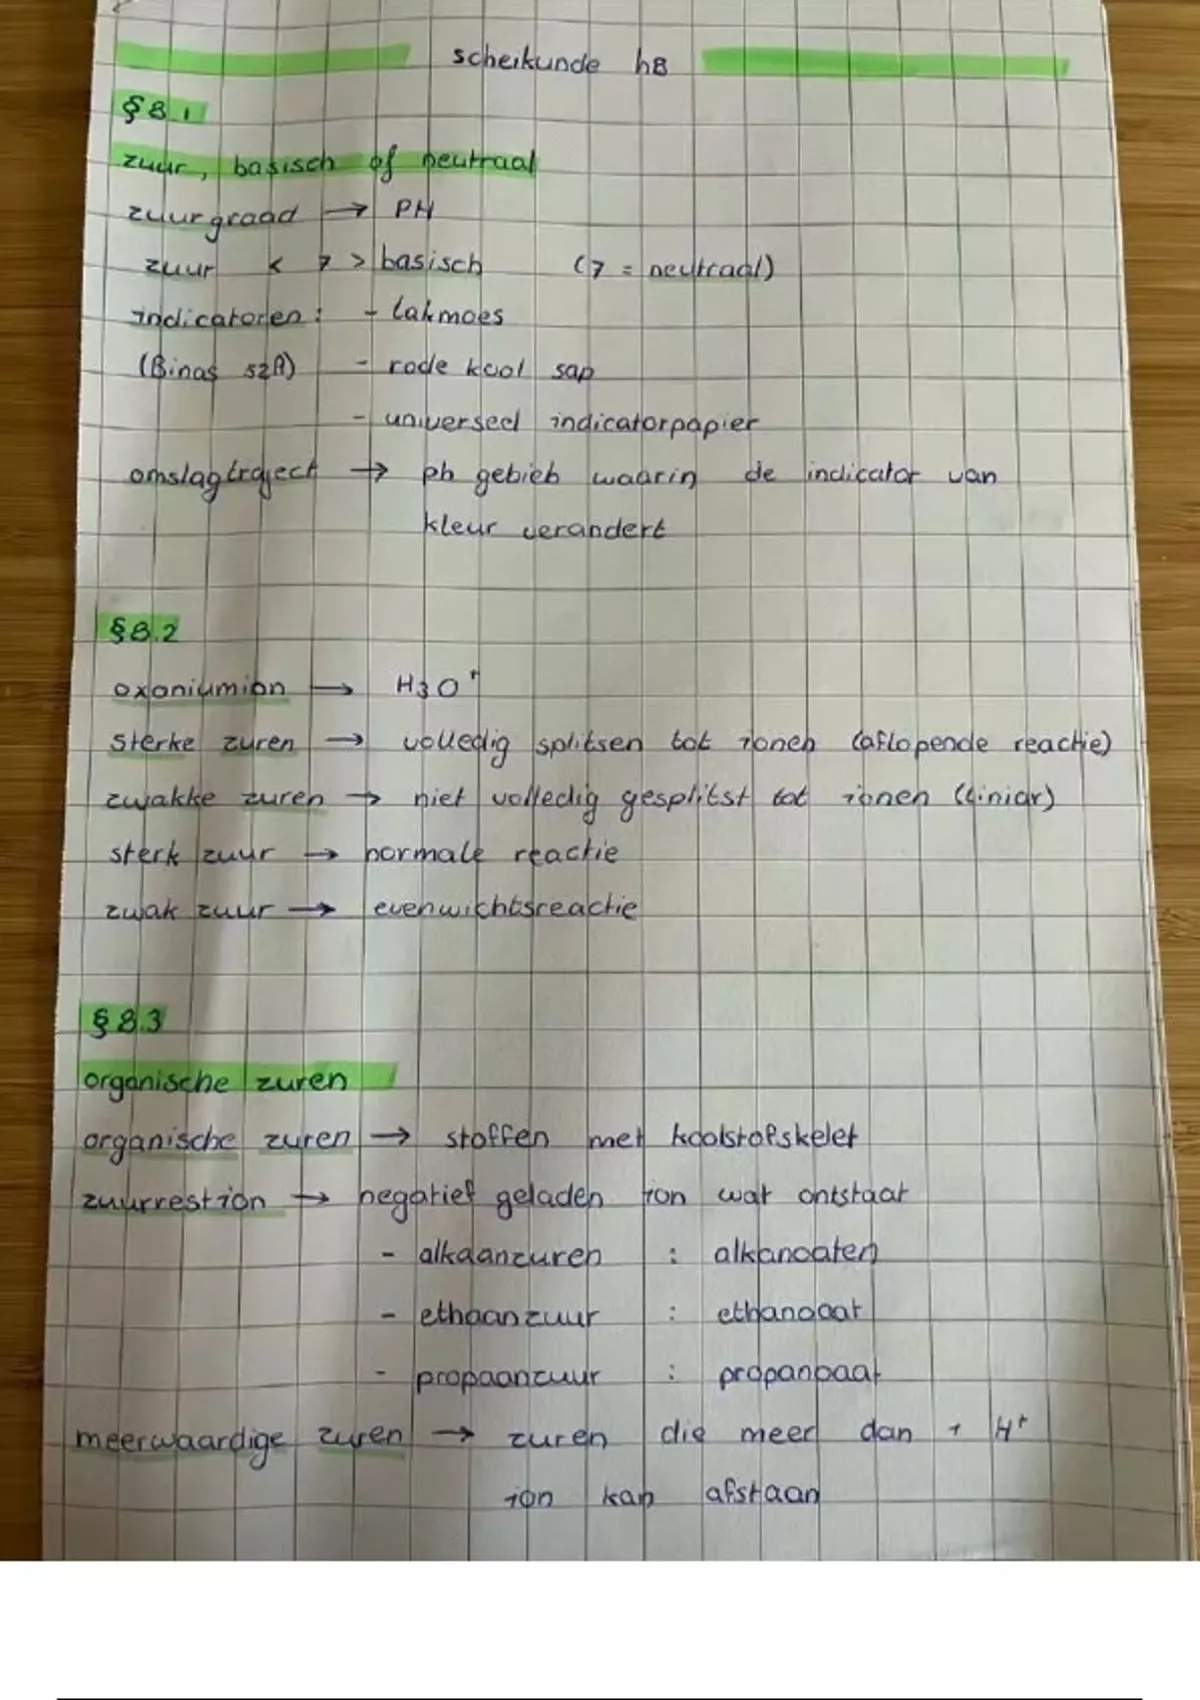 scheikunde h8
§8.1
zuur, basisch of neutraal
zuurgraad → PH
zuur < 7 > basisch (7 = neutraal)
indicatoren: - lakmoes
(Binas 52A) - rode kool sap
- universeel indicatorpapier
omslagtraject → ph gebied waarin de indicator van
kleur verandert
§8.2
oxoniumion → H3O⁺
sterke zuren → volledig splitsen tot ionen (aflopende reactie)
zwakke zuren → niet volledig gesplitst tot ionen (liniar)
sterk zuur → normale reactie
zwak zuur → evenwichtsreactie
§8.3
organische zuren
organische zuren → stoffen met koolstofskelet
zuurrestion → negatief geladen ion wat ontstaat
- alkaanzuren : alkanoaten
- ethaanzuur : ethanoaat
- propaanzuur : propanoaat
meerwaardige zuren → zuren die meer dan 1 H⁺
ion kan afstaan